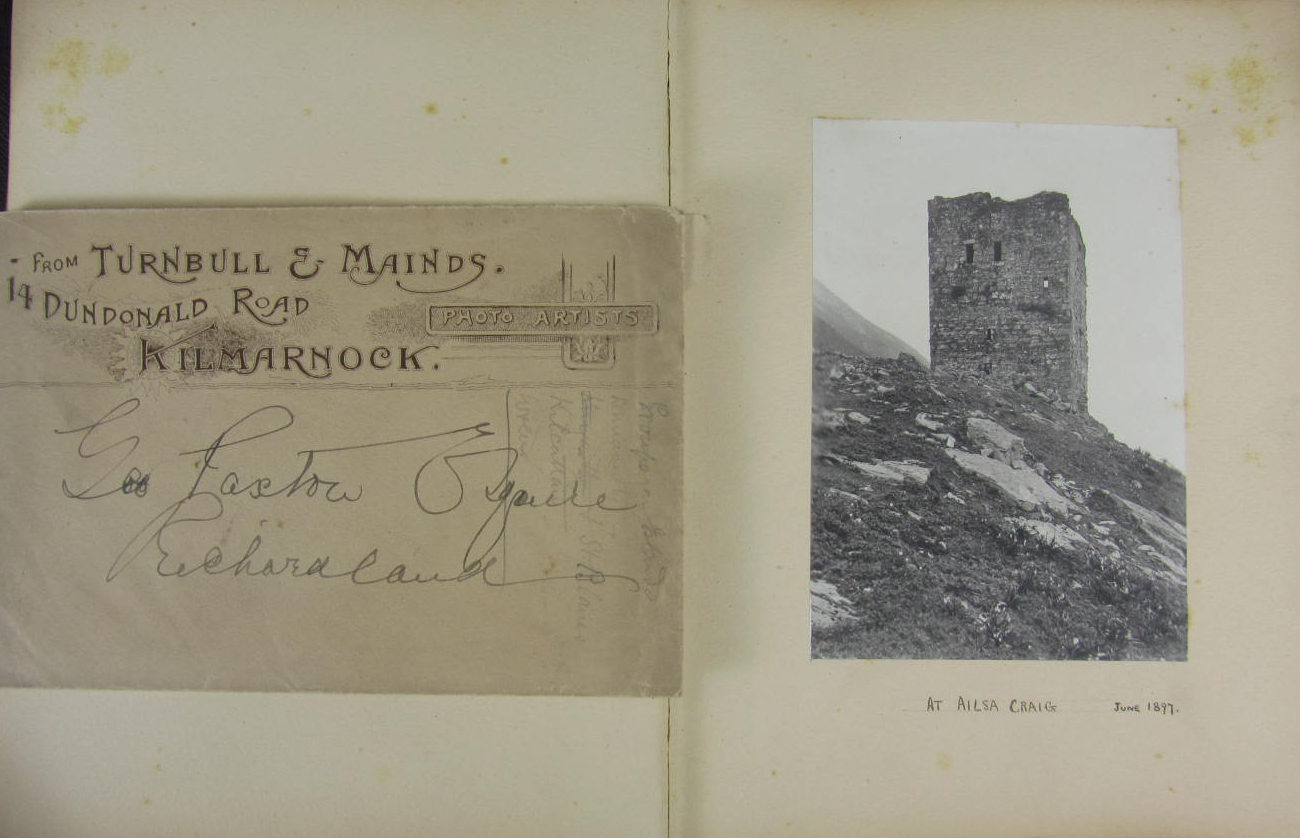 - FROM TURNBULL & MAINDS.
14 DUNDONALD ROAD
PHOTO ARTISTS
KILMARNOCK.
Geo Paxton Esquire
Richardland
AT AILSA CRAIG JUNE 1897.